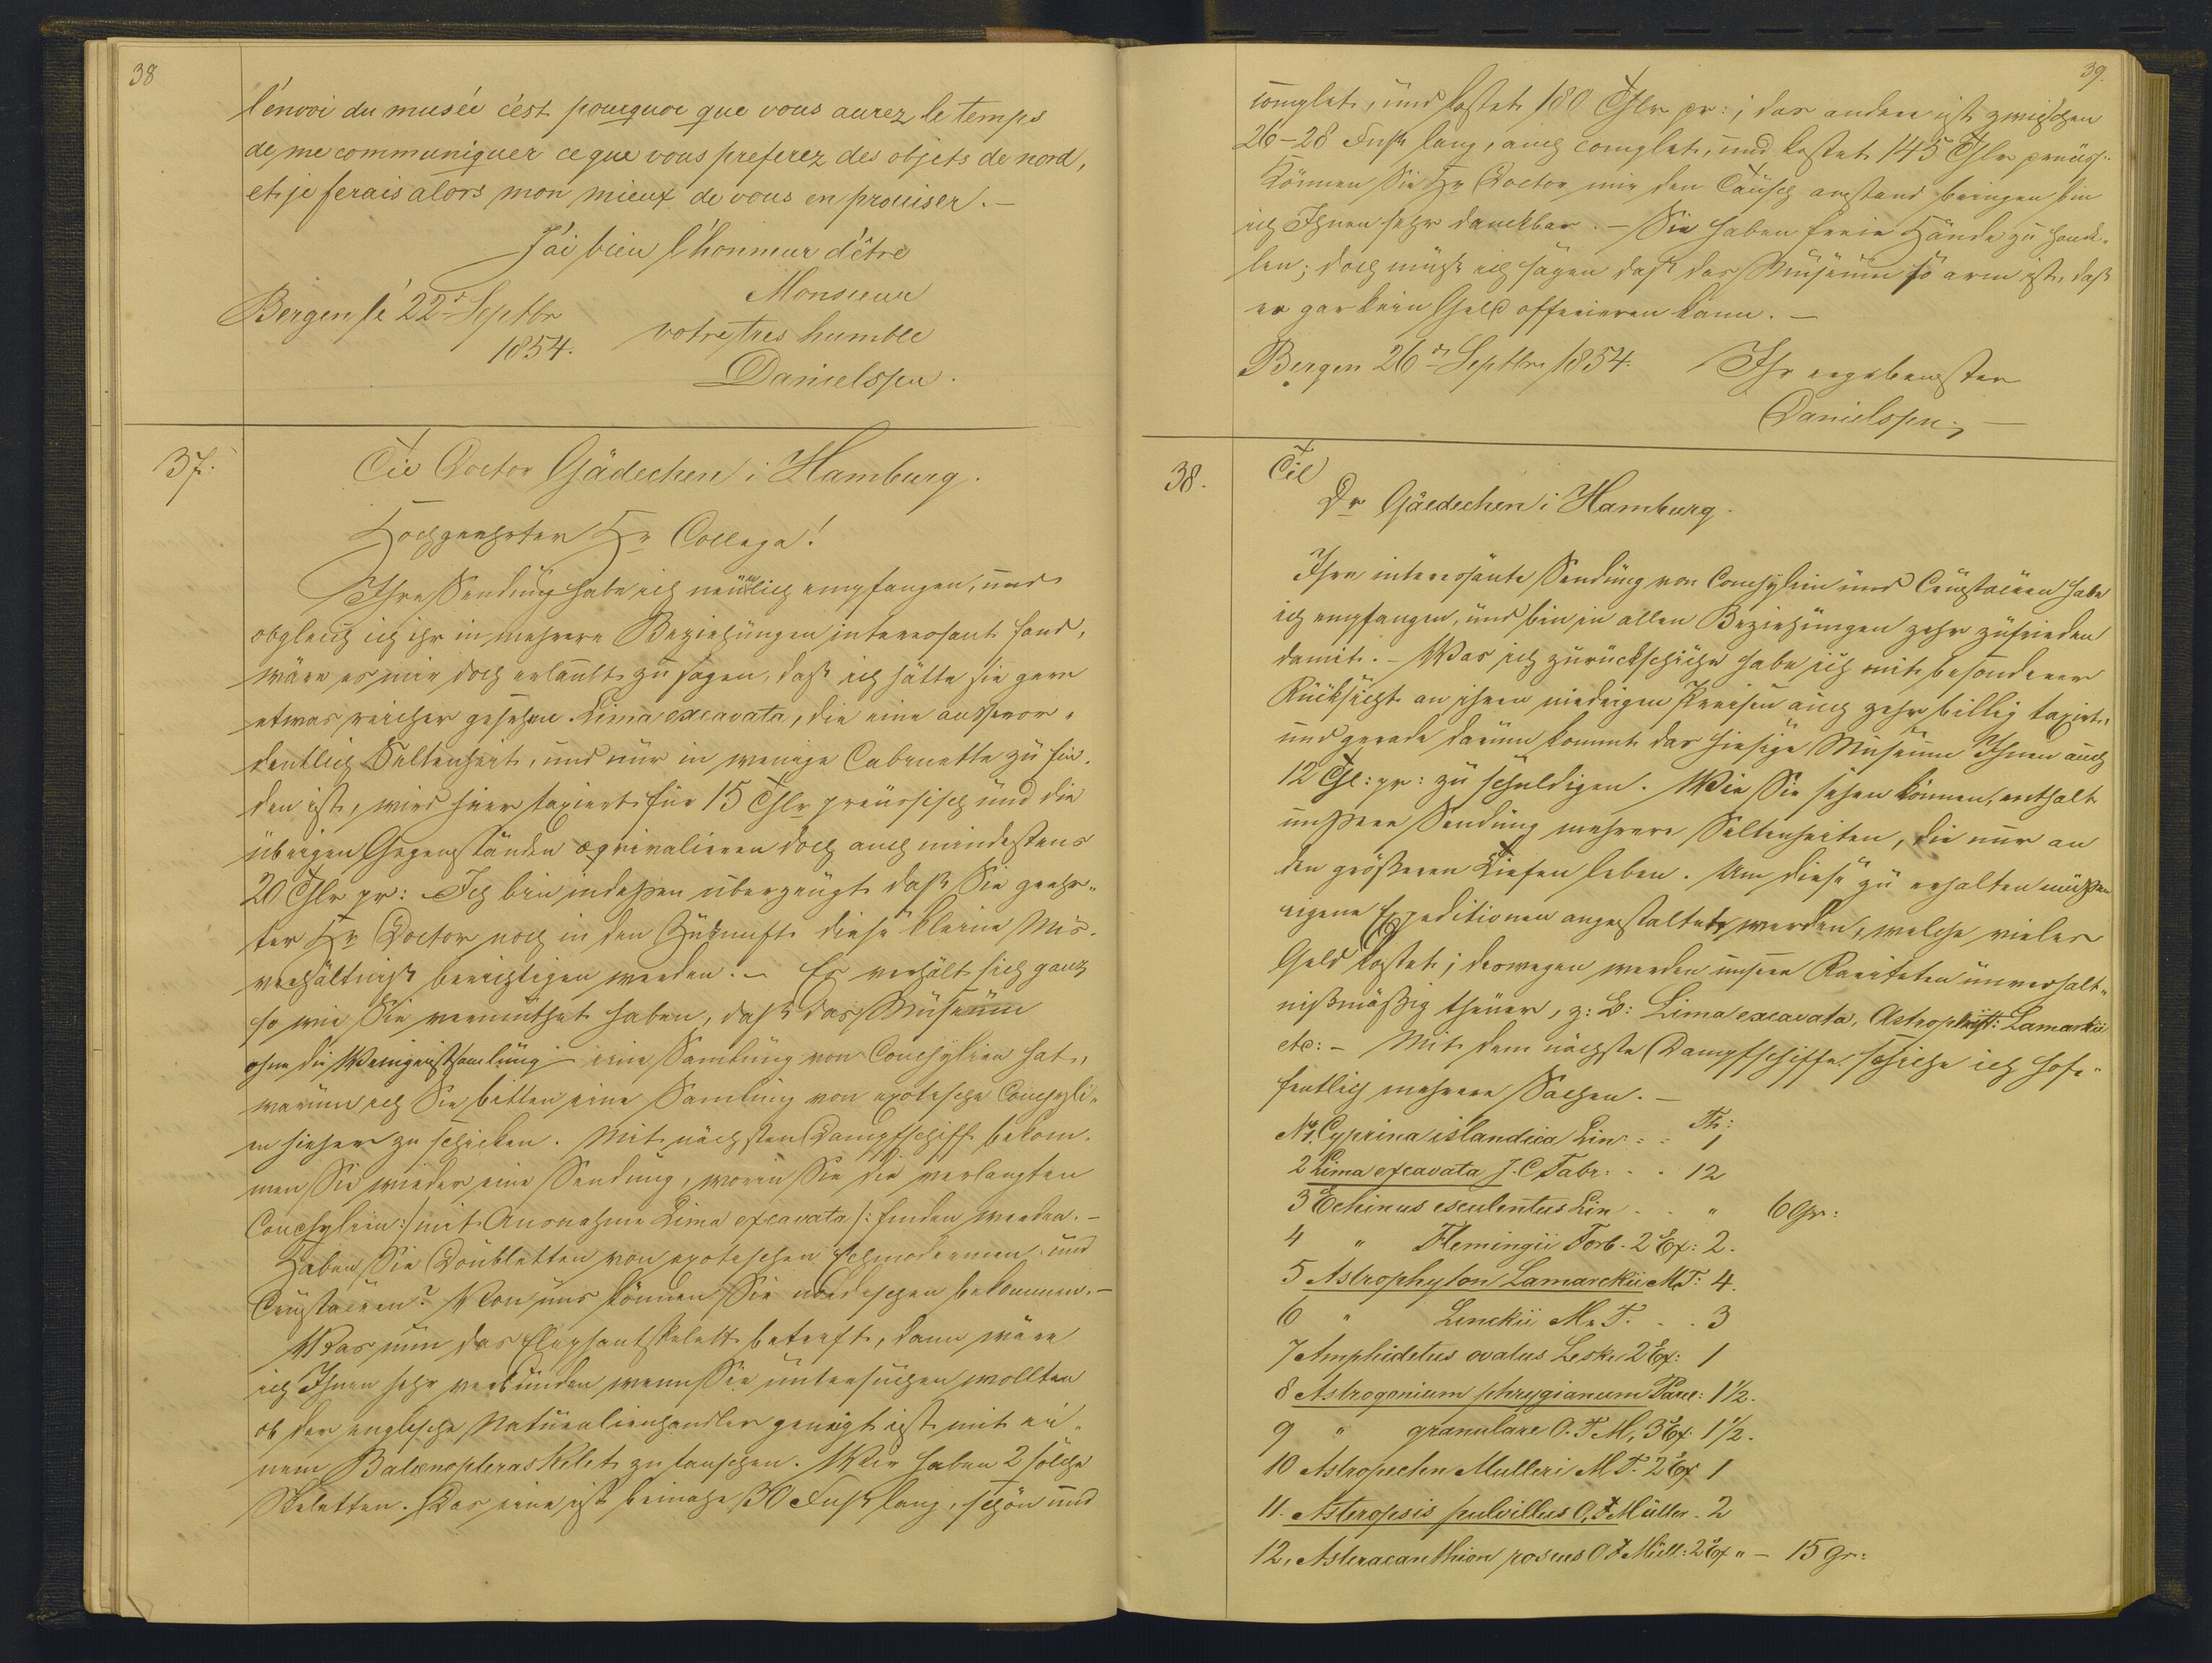 38
l'énvoi du musée c'est pourquoi que vous aurez le temps
de me communiquer ce que vous preferez des objets de nord,
et je ferais alors mon mieux de vous en procuiser. –
J'ai bien l'honneur d'être
Monsieur
Bergen le 22d Septbr
votre tres humble
1854.
Danielssen.
37.
Til Doctor Gädechen i Hamburg.
Hochgeehrter Hr Collega!
Ihre Sendung habe ich neulich empfangen, und
obgleich ich ihr in mehrere Beziehungen interessant fand,
wäre es mir doch erlaubt zu sagen, dass ich hätte sie gern
etwas reicher gesehen. Lima excavata, die eine ausseror-
dentlich Seltenheit, und nur in wenige Cabinette zu fin-
den ist, wird hier taxiert für 15 Thlr preussisch und die
übrigen Gegenständen æqvivalieren doch auch mindestens
20 Thlr pr: Ich bin indessen überzeugt dass Sie geehr-
ter Hr Doctor noch in den Zukunft diese kleine Mis-
verhältniss berichtigen werden. – Es verhält sich ganz
so wie Sie vermuthet haben, dass das Museum
ohne die Weingeistsamlung eine Samlung von Conchylien hat,
warum ich Sie bitten eine Samlung von exotische Conchyli-
en hieher zu schicken. Mit nächsten Dampfschiff bekom-
men Sie wieder eine Sendung, worin Sie die verlangten
Conchylien :/ mit Ausnahme Lima excavata /: finden werden. –
Haben Sie Doubletten von exotischen Echinodermen und
Crustaceen? Von uns können Sie nordischen bekommen. –
Was nun das Elephantskelett betreft, dann wäre
ich Ihnen sehr verbunden wenn Sie untersuchen wollten
ob der englische Naturalienhandler geneigt ist mit ei-
nem Balænopteraskelet zu tauschen. Wir haben 2 solche
Skeletten. Das eine ist beinahe 30 Fuss lang, schön und
39.
complet, und kostet 180 Thlr pr: ; das andere ist zwischen
26–28 Fuss lang, auch complet, und kostet 145 Thlr preuss:
Können Sie Hr Doctor mir den Tausch anstand bringen bin
ich Ihnen sehr danckbar. – Sie haben freie Hände zu hand-
len; doch muss ich sagen dass das Museum so arm ist, dass
es gar kein Geld offerieren kann. –
Bergen 26d Septbr 1854.
Ihr ergebenster
Danielssen. –
38.
Til
Dr Gäedechen i Hamburg.
Ihre interessante Sendung von Conchylien und Crustaceen habe
ich empfangen, und bin in allen Beziehungen sehr zufrieden
damit. – Was ich zurückschicke habe ich mit besonderer
Rücksicht an ihren niedrigen Preisen auch sehr billig taxirt,
und gerade darum kommt das hiesige Museum Ihnen auch
12 Thl: pr: zu schuldigen. Wie Sie sehen können, enthalt
unssere Sendung mehrere Seltenheiten, die nur an
den grösseren Tiefen leben. Um diese zu erhalten müssen
eigene Expeditionen angestaltet werden, welche vieles
Geld kostet; deswegen werden unsere Rariteten unverhalt-
nissmässig theuer, z: B: Lima excavata, Astrophyt: Lamarkii
etc: – Mit dem nächste Dampfschiffe schicke ich hof-
fentlich mehrere Sachen. –
Th:
No 1. Cyprina islandica Lin: - - 1
2 Lima excavata J. C. Fabr: - - 12
3 Echinus esculentus Lin - - " 6 Gr:
4 " Flemingii Forb. 2 Ex: 2.
5 Astrophyton Lamarckii M&T: 4.
6 " Linckii M&T. - - 3
7 Amphidetus ovatus Leske 2 Ex: 1
8 Astrogonium phrygianum Parel: 1½.
9 " granulare O. F. M, 3 Ex: 1½.
10 Astropecten Mulleri M T. 2 Ex 1
11. Asteropsis pulvillus O. F. Müller. 2
12, Asteracanthion roseus O F Müll: 2 Ex " – 15 gr: